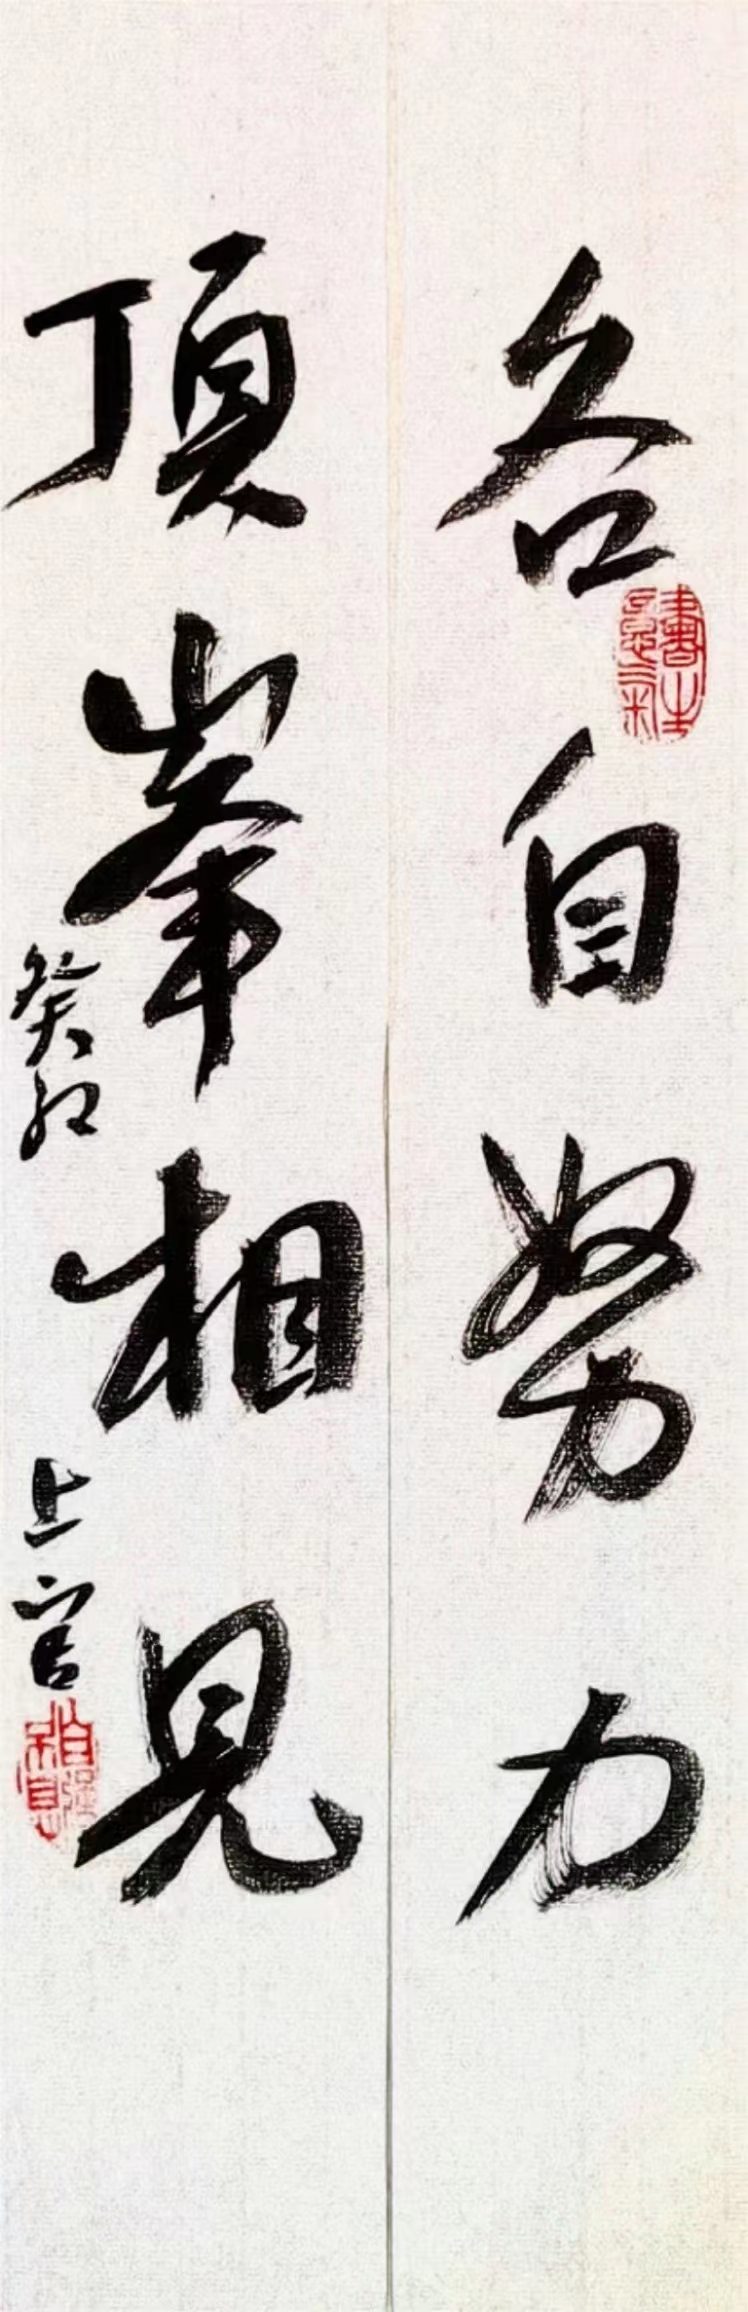 各自努力
頂峯相見
癸卯
上官